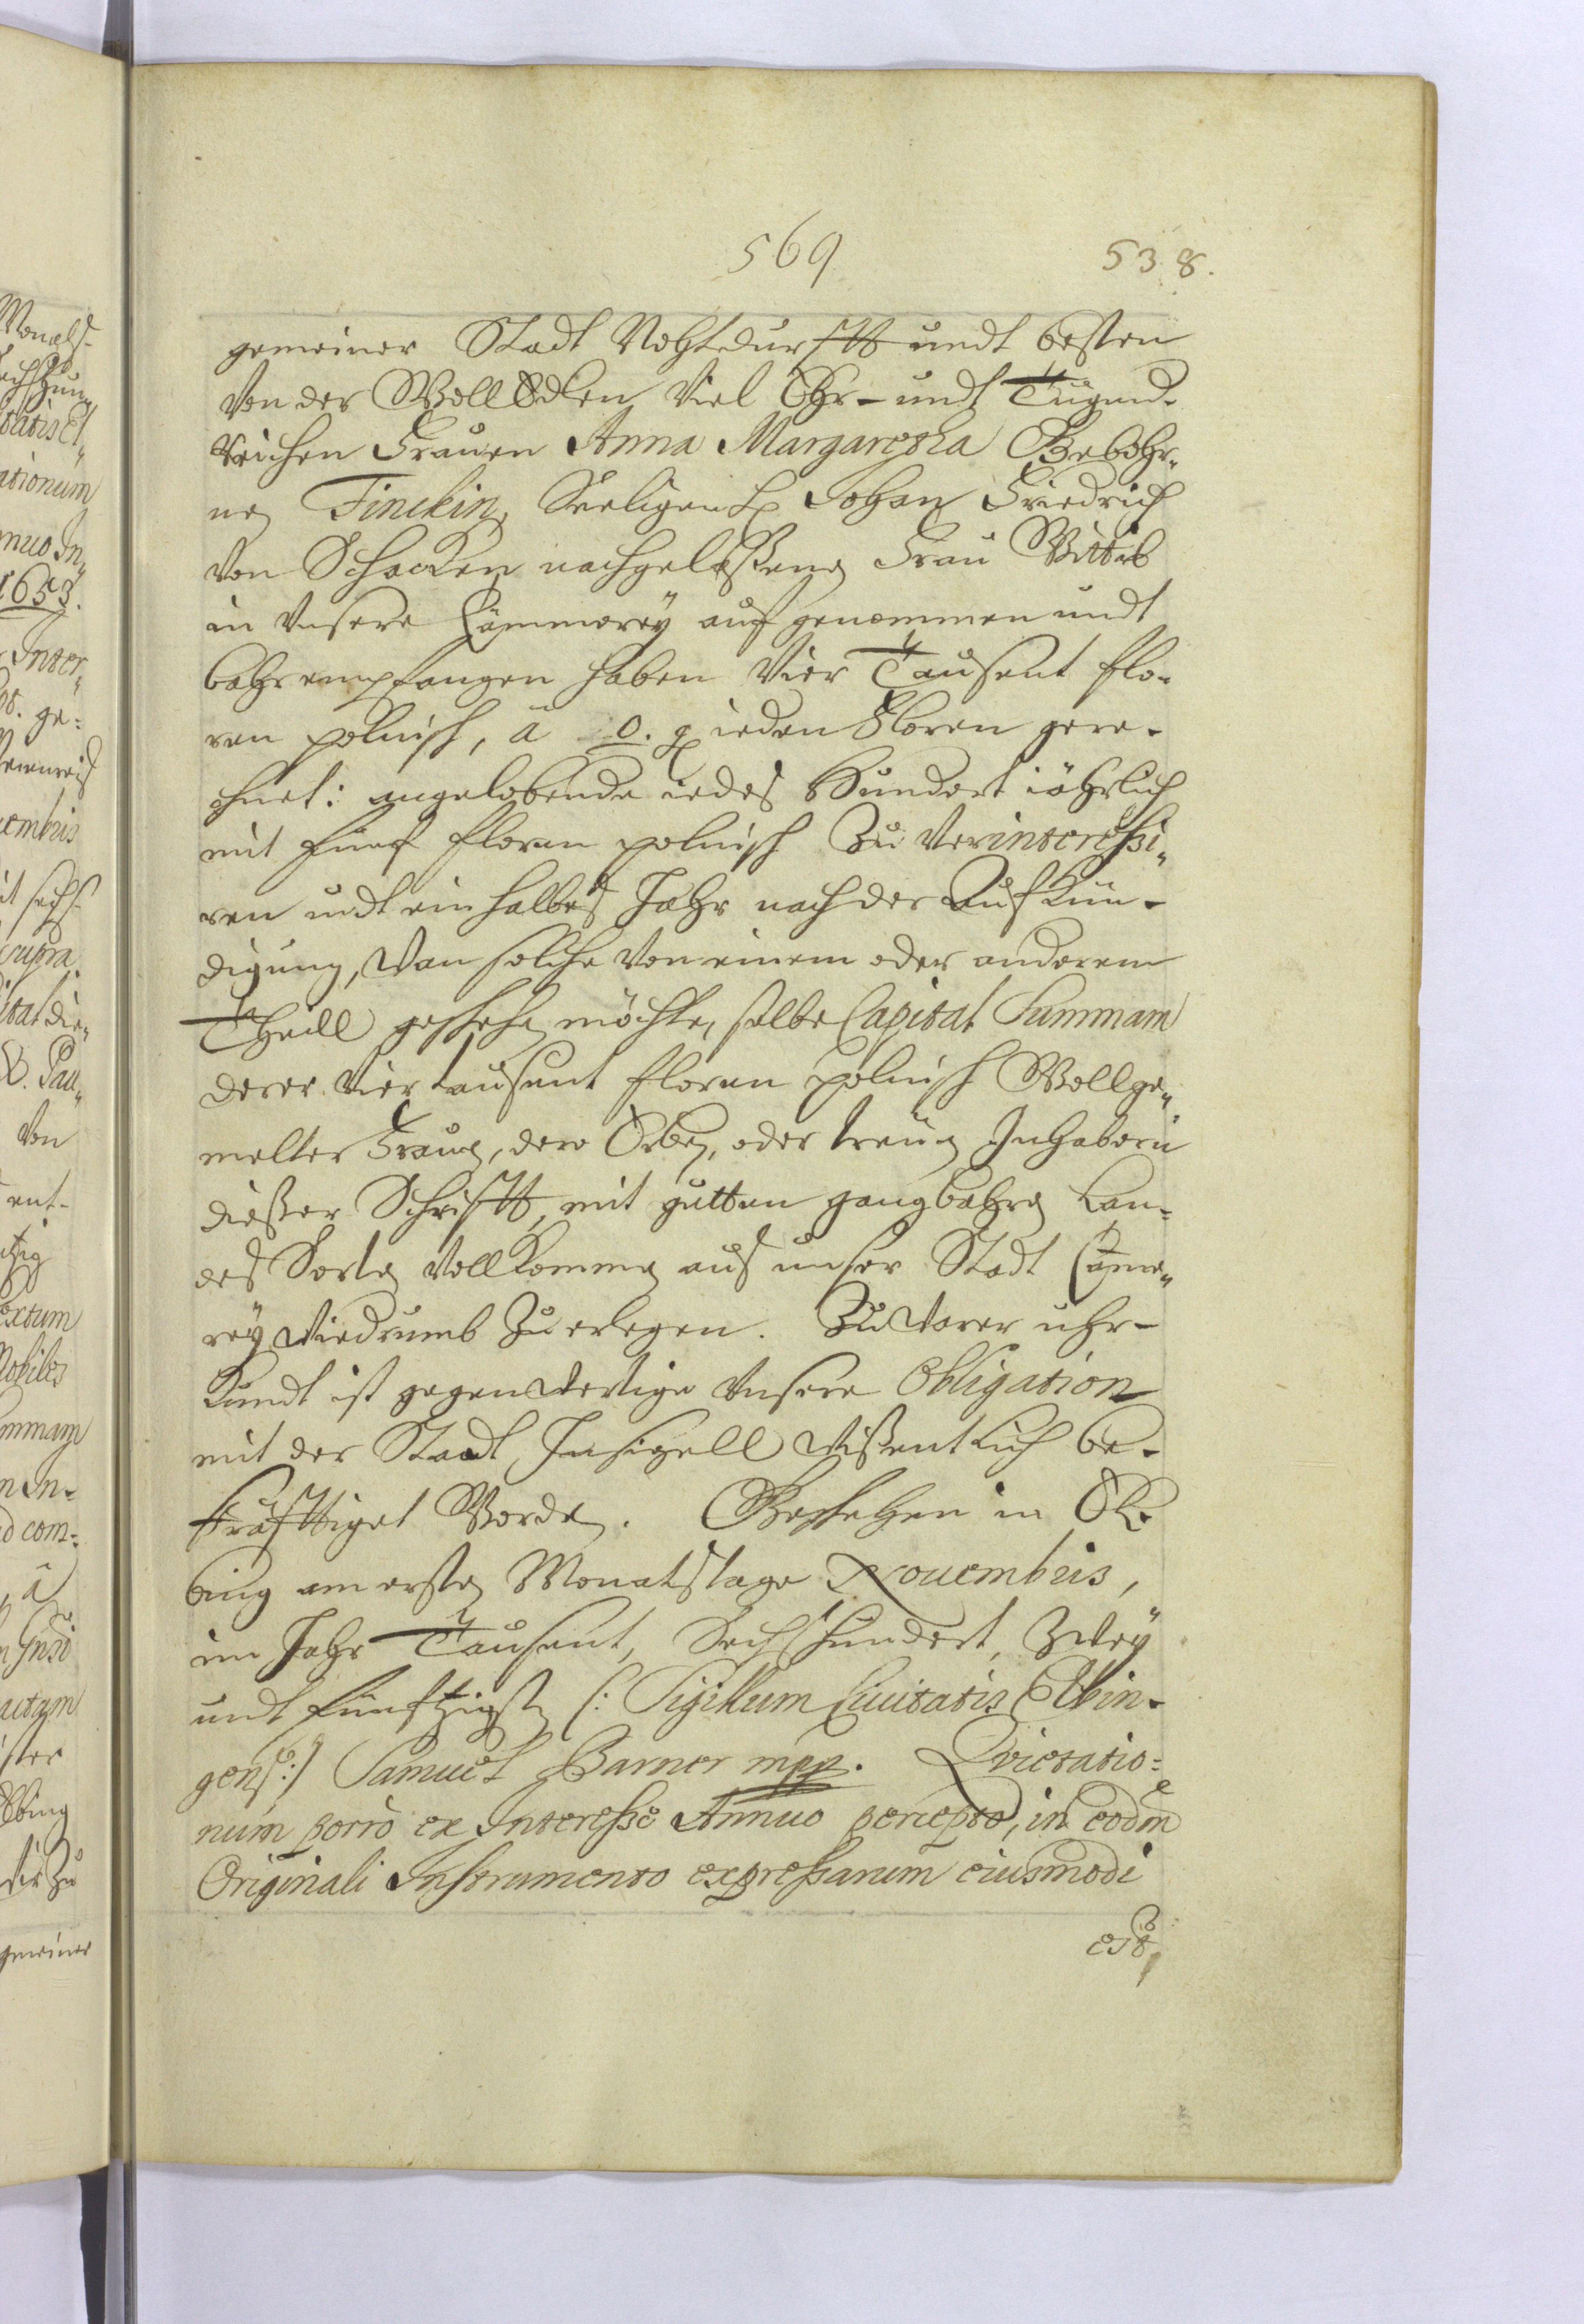 569
538.
gemeiner Stadt Nohtdurfft undt besten
Von der WollEdlen Viel Ehr- undt Tugend-
reichen Frauen Anna Margaretha Gebohr„
nen Finckin, Seeligen H. Johan Friedrich
von Schacken nachgelaßene Frau Wittib
in Vnsere Cämmerey auf genommen undt
bahr empfangen haben Vier Tausent flo-
ren polnisch, â 30. g ieden Floren gere-
chnet: angelobende iedes Hundert iährlich
mit fünf floren polnisch Zu Verinteressi„
ren undt ein halbes Jahr nach der Aufkün-
digung, Wan solche Von einem oder anderem
Theill geschehen möchte, selbe Capital Summam
derer Vier tausent floren polnisch Wollge„
melter Frauen, dero Erben, oder treuen Inhabern
dießer Schrifft, mit gutten gangbahren Lan-
des Sorten Vollkommen aus unser Stadt Cäme„
rey Wiedrumb Zu erlegen. Zu Warer uhr-
kundt ist gegenwertige Vnsere Obligation
mit der Stadt Insigell Wißentlich be-
kräfftiget Worden. Geschehen in El-
bing am ersten Monatstage Nouembris,
im Jahr Tausent, Sechshundert, Zwey
undt fünftzigsten (: Sigillum Ciuitatis Elbin-
gens:) Samuel Barner mpp. Qvietatio:
num porrò ex Interesse Annuo percepto, in eodem
Originali Instrumento expressarum eiusmodi
est,
Monats-
ationum
nuo In„
1653.
Inter„
ge:
embris
sechs
supra
Von
ent-
extum
Nobiles
n In-
d com:
â
actam
Elbing
wir Zu
gemeiner